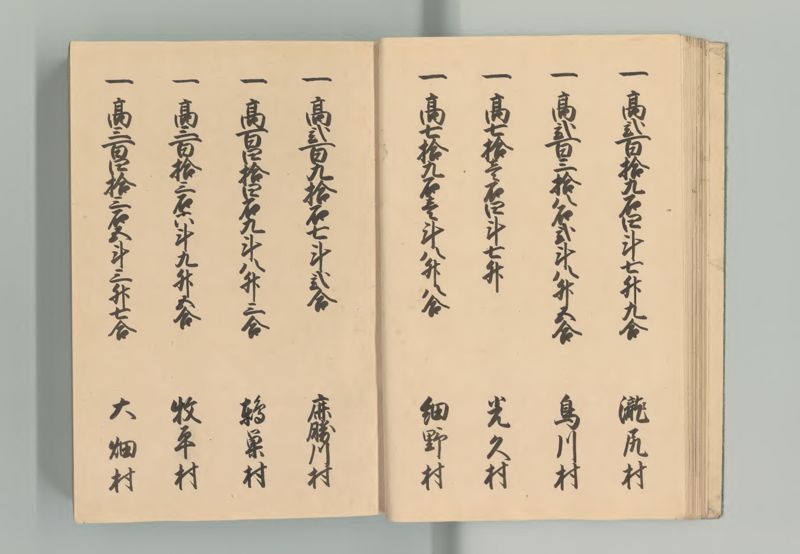 一 高弐百拾九石四斗七升九合 瀧尻村
一 高弐百三拾八石弐斗八升五合 鳥川村
一 高七拾壱石四斗七升 光久村
一 高七拾九石壱斗八升八合 細野村
一 高弐百九拾石七斗弐合 麻勝川村
一 高百四拾四石九斗八升二合 鶇巣村
一 高三百拾三石六斗九升五合 牧平村
一 高三百四拾三石五斗三升七合 大畑村